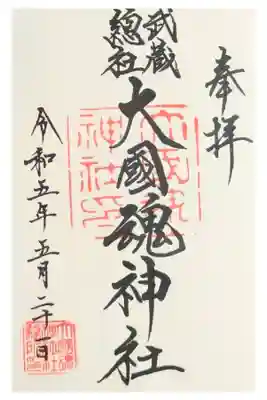 奉拝
武蔵
總社
大國魂神社
令和五年五月二十一日